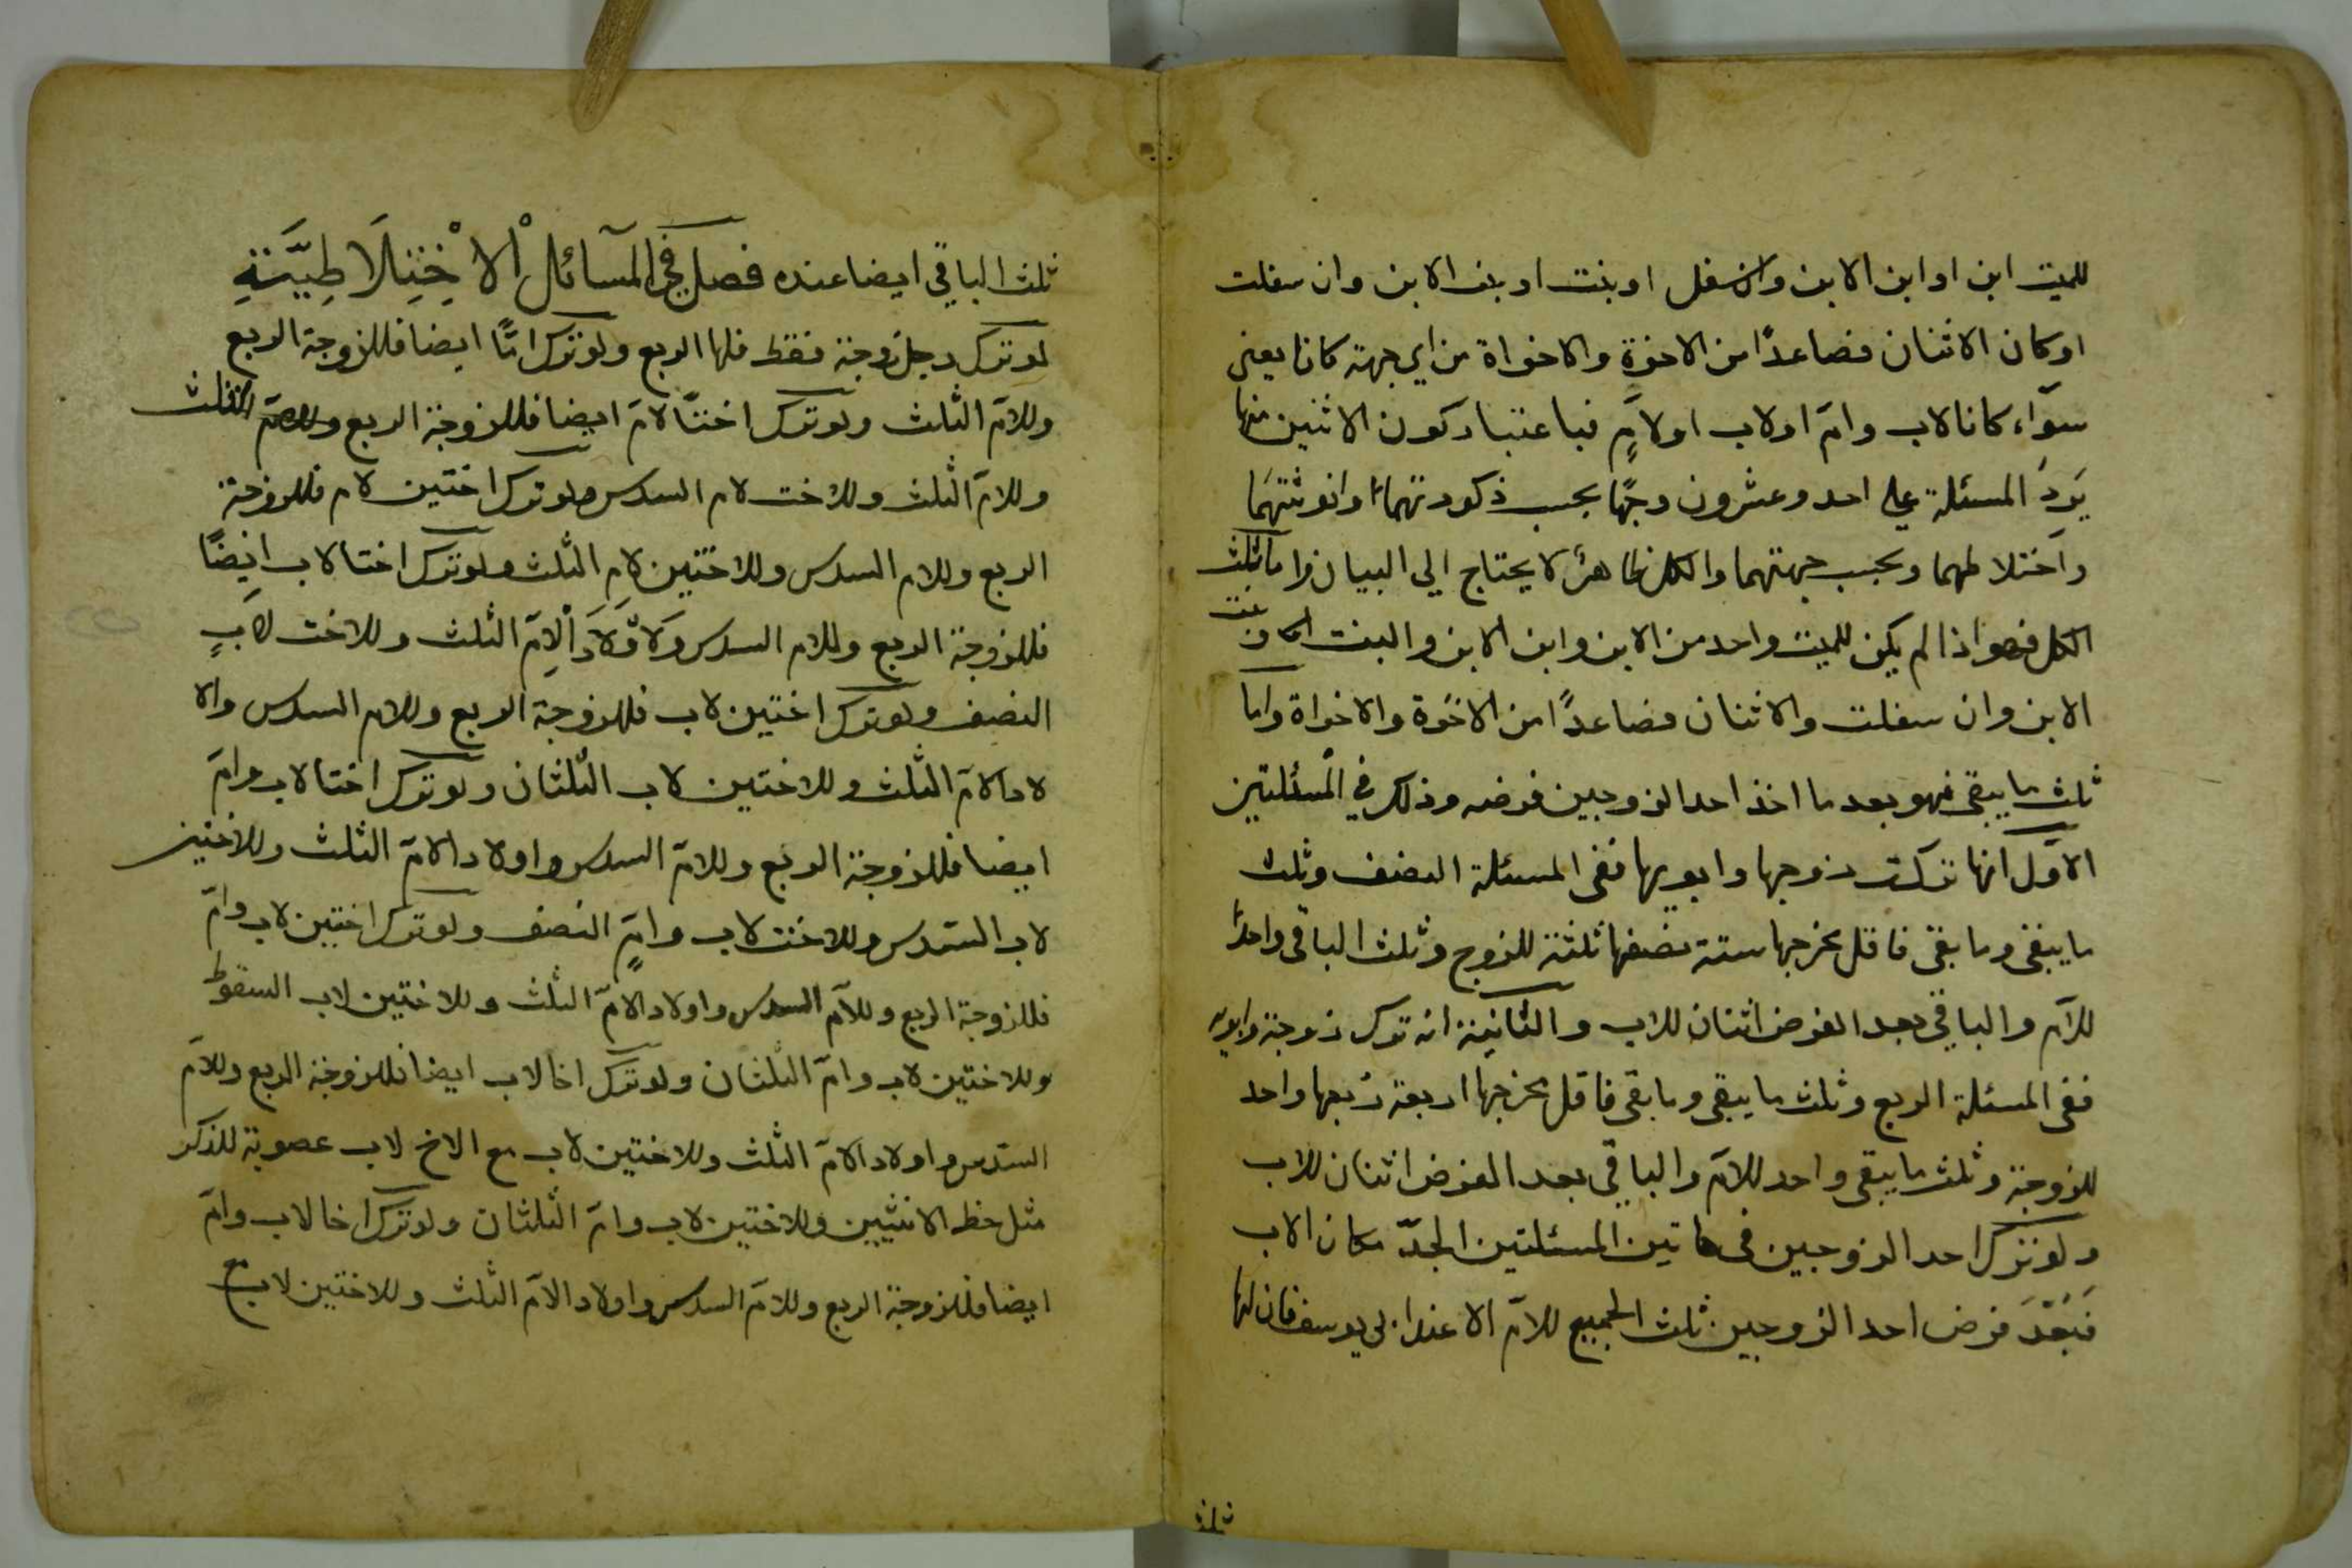 للميت ابن او ابن الابن وان سفل او بنت او بنت الابن وان سفلت
او كان الاثنان فصاعدًا من الاخوة والاخواة من اي جهة كانا يعنى
سوآء كانا لاب وامّ او لاب او لامٍّ فباعتبار كون الاثنين منها
يَردَ المسئلة علي احد وعشرون وجهًا بحسب ذكورتهما وانوثتهما
واختلاطهما وبحسب جهتهما والكل ظاهر لا يحتاج الي البيان واما ثلث
الكل فهو اذا لم يكن للميت واحد من الابن وابن الابن والبنت وبنت
الابن وان سفلت والاثنان فصاعدًا من الاخوة والاخواة واما
ثلث ما يبقى فهو بعد ما اخذ احد الزوجين فرضه وذلك في المسئلتين
الاوّل انها تركت زوجها وابويها ففى المسئلة النصف وثلث
ما يبقى وما بقى فاقل مخرجها ستة نصفها ثلثة للزوج وثلث الباقى واحدًا
للامّ والباقي بعد الفرض اثنان للاب والثانية انه ترك زوجة وابويه
ففى المسئلة الربع وثلث ما يبقى وما بقى فاقل مخرجها اربعة رُبعها واحد
للزوجة وثلث ما يبقى واحد للامّ والباقي بعد الفرض اثنان للاب
ولو ترك احد الزوجين فى هاتين المسئلتين الجدّ مكان الاب
فَبَعْدَ فرض احد الزوجين ثلث الجميع للامّ الا عند ابى يوسف فان لها
ثلث
ثلث الباقي ايضا عنده فصل في المسآئل الاخْتِلَاطِيَّةِ
لو ترك رجل زوجة فقط فلها الربع ولو ترك امًّا ايضا فللزوجة الربع
وللامّ الثلث ولو ترك اختًا لامّ ايضا فللزوجة الربع
وللامّ الثلث وللاخت لام السدس ولو ترك اختين لام فللزوجة
الربع وللام السدس وللاختين لام الثلث ولو ترك اختا لاب ايضًا
فللزوجة الربع وللام السدس ولاولاد الامّ الثلث وللاخت لابٍ
النصف ولو ترك اختين لاب فللزوجة الربع وللام السدس ولاو
لاد الامّ الثلث وللاختين لاب الثلثان ولو ترك اختا لاب وامّ
ايضا فللزوجة الربع وللامّ السدس واولاد الامّ الثلث وللاختين
لاب السّدس وللاخت لاب وامّ النصف ولو ترك اختين لاب وامّ
فللزوجة الربع وللامّ السدس واولاد الامّ الثلث وللاختين لاب السقوط
وللاختين لاب وامّ الثلثان ولو ترك اخا لاب ايضا فللزوجة الربع وللامّ
السّدس واولاد الامّ الثلث وللاختين لاب مع الاخ لاب عصوبة للذكر
مثل حظ الانثيين وللاختين لاب وامّ الثلثان ولو ترك اخا لاب وامّ
ايضا فللزوجة الربع وللامّ السدس واولاد الامّ الثلث وللاختين لاب مع